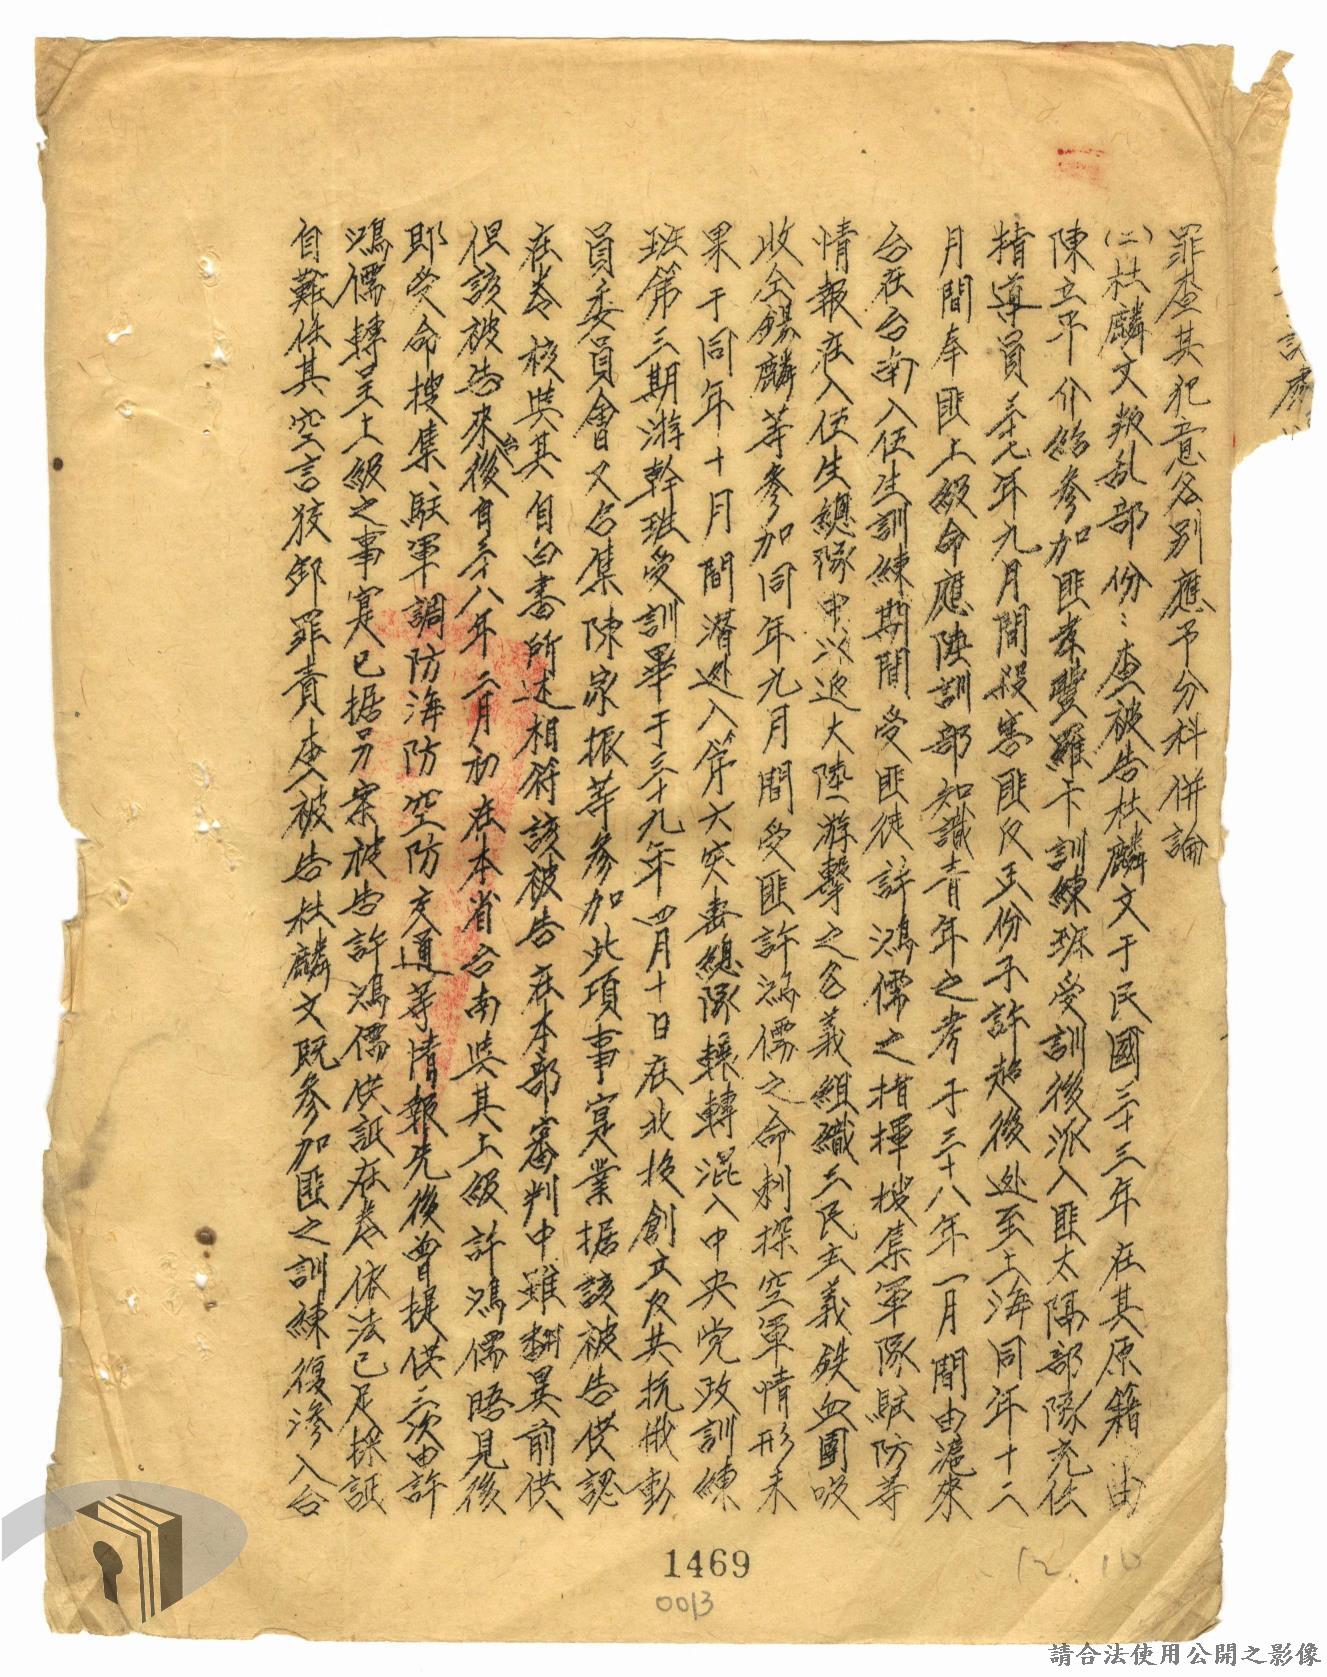 罪查其犯意各别應予分科併論
(二)杜麟文叛乱部份：查被告杜麟文于民國三十三年在其原籍由
陳立平介紹參加匪孝豐羅卡訓練班受訓後派入匪太隔部隊充任
精導員卅七年九月間殺害匪反正份子許超後逃至上海同年十二
月間奉匪上級命應陸訓部知識青年之考于三十八年一月間由滬來
台在台南入伍生訓練期間受匪徒許鴻儒之指揮搜集軍隊駐防等
情報在入伍生總隊中以返大陸游擊之名義組織三民主義鉄血團吸
收仝錫麟等參加同年九月間受匪許鴻儒之命刺探空軍情形未
果于同年十月間潛逃入第六突击總隊輾轉混入中央党政訓練
班第三期游幹班受訓畢于三十九年四月十日在北投創立反共抗俄動
員委員會又召集陳家振等參加此項事寔業据該被告供認
在卷核與其自白書所述相符該被告在本部審判中雖翻異前供
但該被告來台後自三十八年二月初在本省台南與其上級許鴻儒晤見後
即受命搜集駐軍調防海防空防交通等情報先後曾提供三次由許
鴻儒轉呈上級之事寔已据另案被告許鴻儒供証在卷依法已足採証
自難任其空言狡卸罪責查被告杜麟文既參加匪之訓練復滲入台
1469
0013
12.10
請合法使用公開之影像